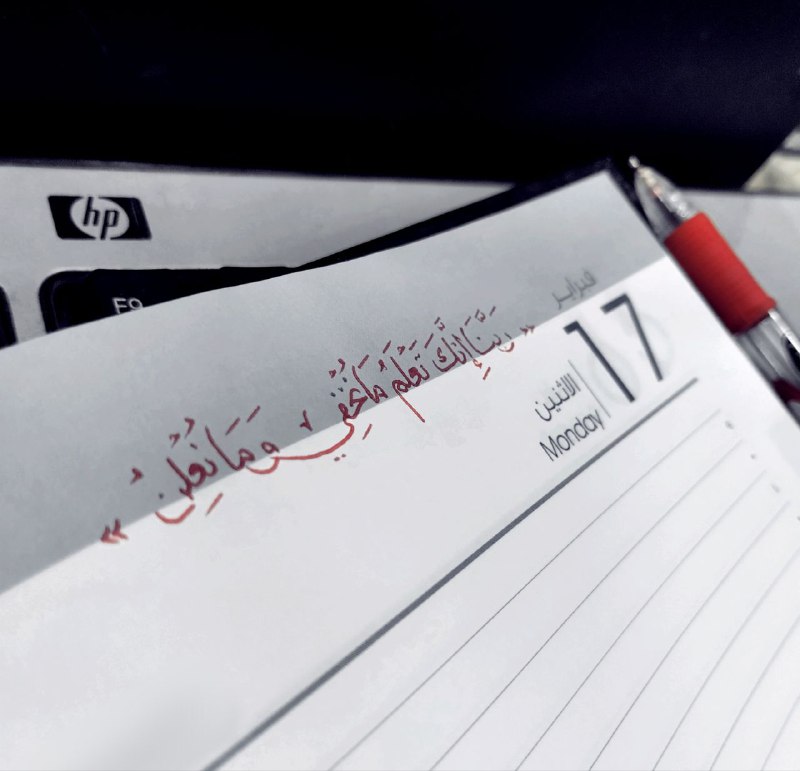 hp
F9
فبراير
17
الاثنين
Monday
« رَبَّنَا إِنَّكَ تَعْلَمُ مَا نُخْفِي وَمَا نُعْلِنُ »